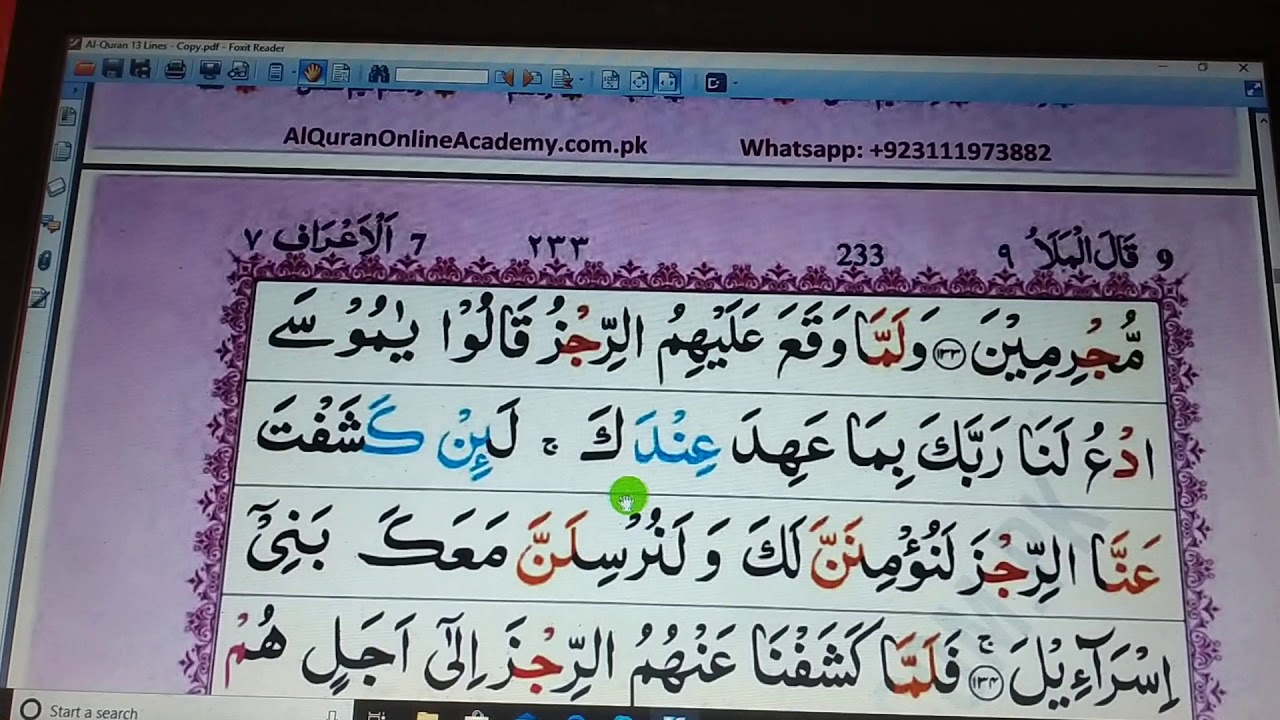 Al-Quran 13 Lines - Copy.pdf - Foxit Reader
AlQuranOnlineAcademy.com.pk Whatsapp: +923111973882
9 قَالَ الْمَلَاُ ٩ 233 ٢٣٣ 7 اَلْاَعْرَاف ٧
مُّجْرِمِيْنَ ۝١٣٣ وَلَمَّا وَقَعَ عَلَيْهِمُ الرِّجْزُ قَالُوْا يٰمُوْسَے
ادْعُ لَنَا رَبَّكَ بِمَا عَهِدَ عِنْدَكَ ۚ لَئِنْ كَشَفْتَ
عَنَّا الرِّجْزَ لَنُؤْمِنَنَّ لَكَ وَ لَنُرْسِلَنَّ مَعَكَ بَنِيْۤ
اِسْرَآءِيْلَ ۚ۝١٣٤ فَلَمَّا كَشَفْنَا عَنْهُمُ الرِّجْزَ اِلٰۤى اَجَلٍ هُمْ
Start a search